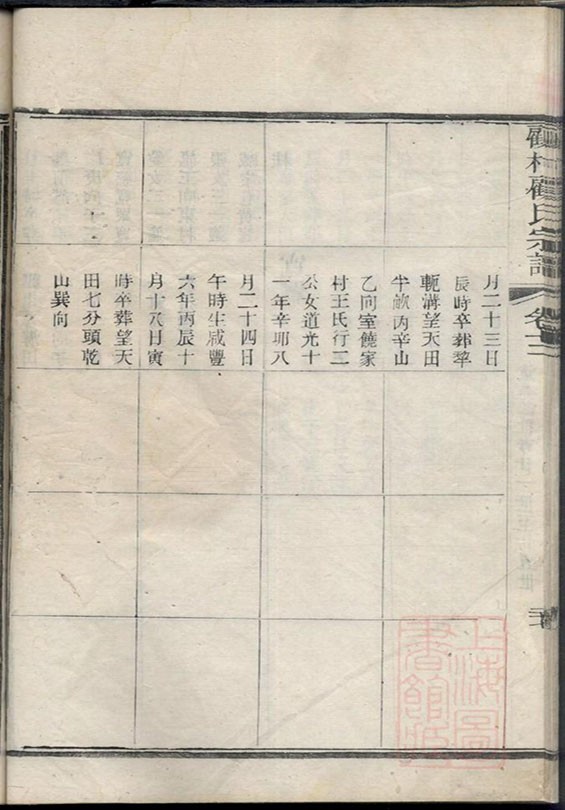 月二十三日
辰時卒葬犂
軛溝望天田
半畝丙辛山
乙向室饒家
村王氏行二
公女道光十
一年辛卯八
月二十四日
午時生咸豐
六年丙辰十
月十八日寅
時卒葬望天
田七分頭乾
山巽向
村顧氏宗譜
卷十二
上海圖書館藏